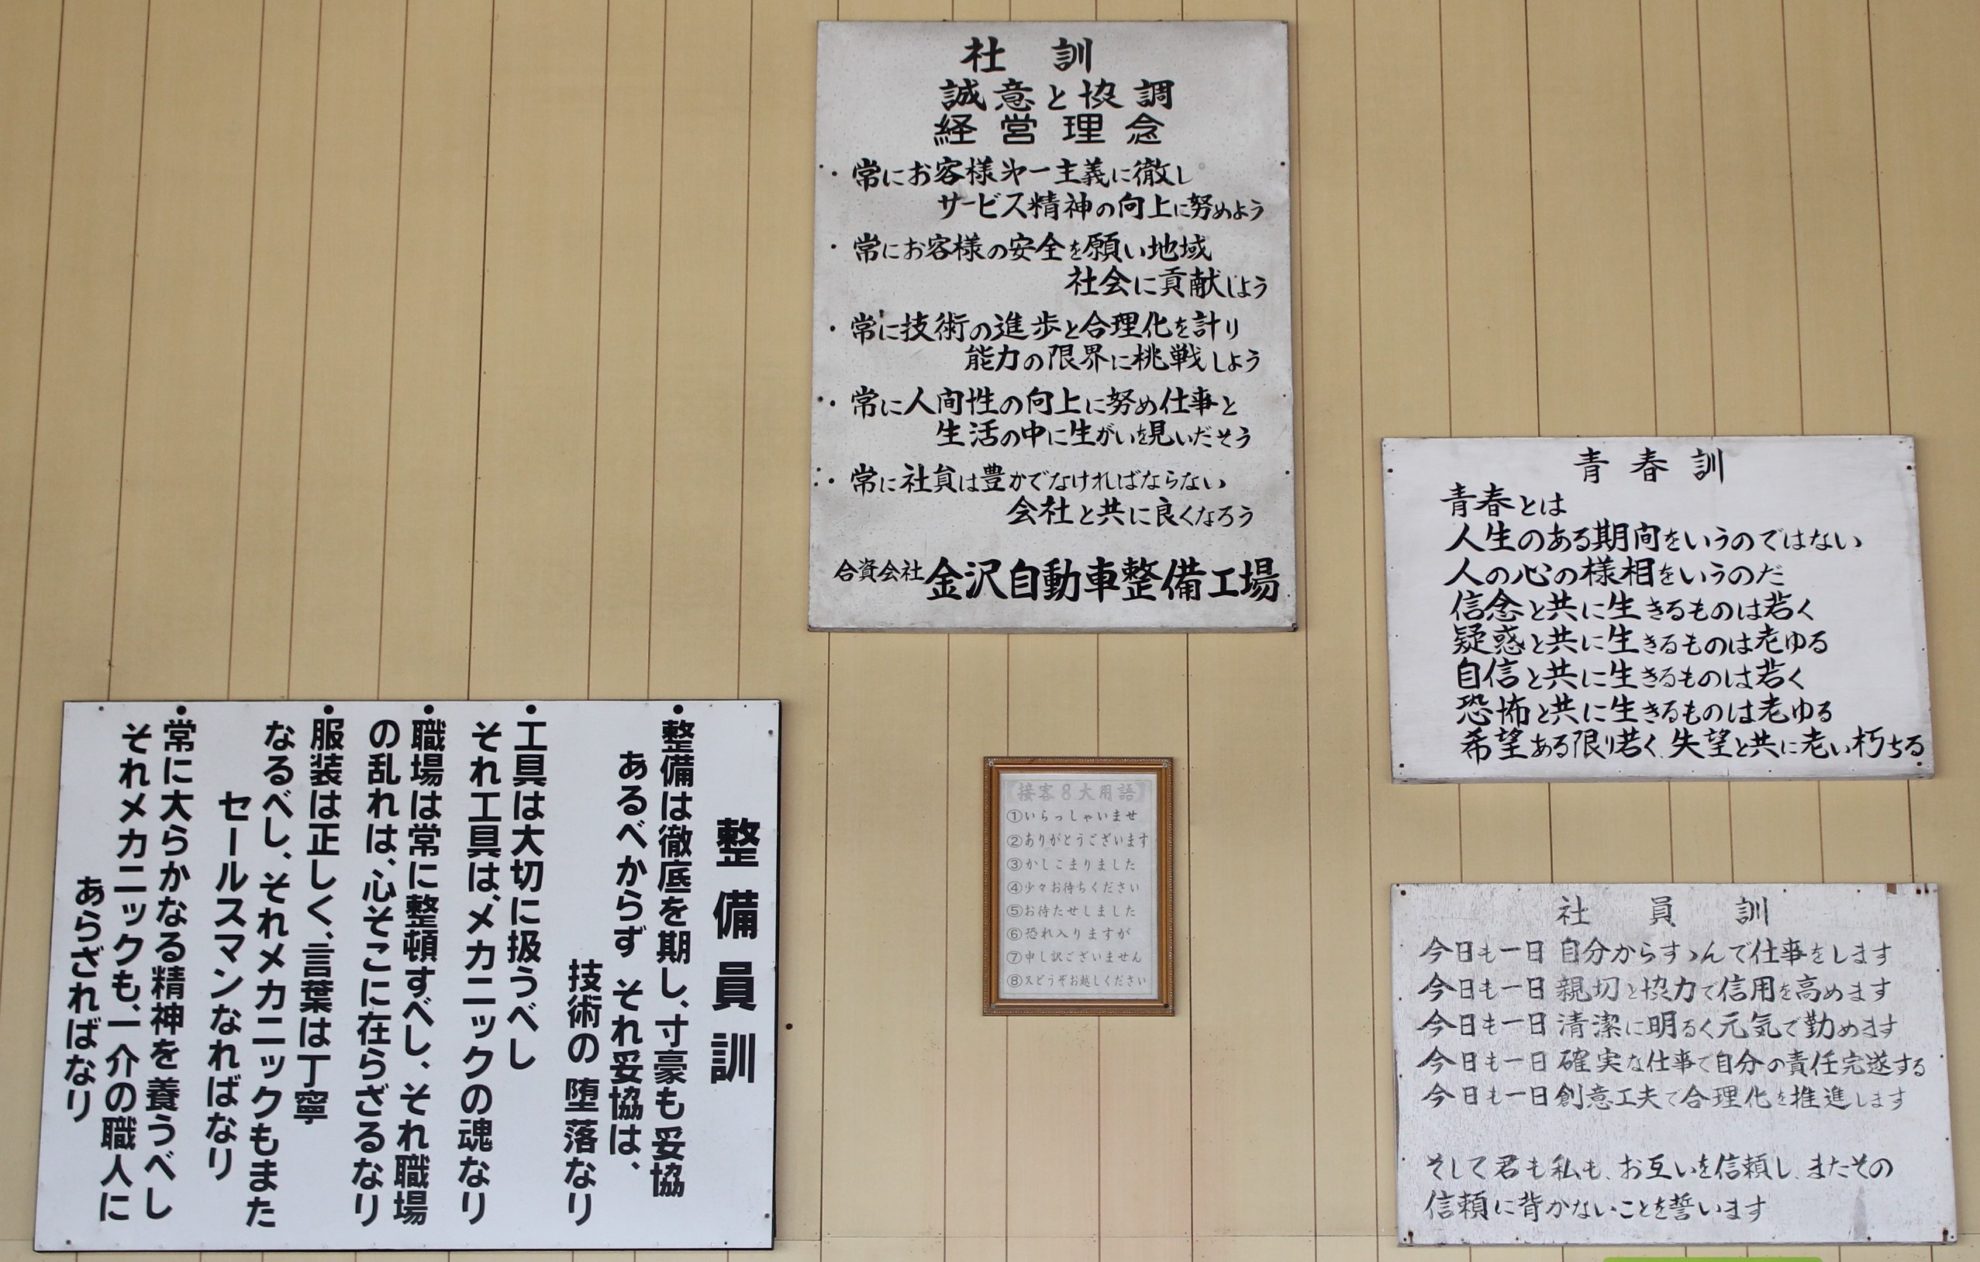 社訓
誠意と協調
経営理念
・常にお客様㐧一主義に徹し
サービス精神の向上に努めよう
・常にお客様の安全を願い地域
社会に貢献しよう
・常に技術の進歩と合理化を計り
能力の限界に挑戦しよう
・常に人間性の向上に努め仕事と
生活の中に生がいを見いだそう
・常に社員は豊かでなければならない
会社と共に良くなろう
合資会社 金沢自動車整備工場
青春訓
青春とは
人生のある期間をいうのではない
人の心の様相をいうのだ
信念と共に生きるものは若く
疑惑と共に生きるものは老ゆる
自信と共に生きるものは若く
恐怖と共に生きるものは老ゆる
希望ある限り若く、失望と共に老い朽ちる
整備員訓
●整備は徹底を期し、寸豪も妥協
あるべからず それ妥協は、
技術の堕落なり
●工具は大切に扱うべし
それ工具は、メカニックの魂なり
●職場は常に整頓すべし、それ職場
の乱れは、心そこに在らざるなり
●服装は正しく、言葉は丁寧
なるべし、それメカニックもまた
セールスマンなればなり
●常に大らかなる精神を養うべし
それメカニックも、一介の職人に
あらざればなり
【接客8大用語】
①いらっしゃいませ
②ありがとうございます
③かしこまりました
④少々お待ちください
⑤お待たせしました
⑥恐れ入りますが
⑦申し訳ございません
⑧又どうぞお越しください
社員訓
今日も一日 自分からすゝんで仕事をします
今日も一日 親切と協力で信用を高めます
今日も一日 清潔に明るく元気で勤めます
今日も一日 確実な仕事で自分の責任完遂する
今日も一日 創意工夫で合理化を推進します
そして君も私も、お互いを信頼し、またその
信頼に背かないことを誓います